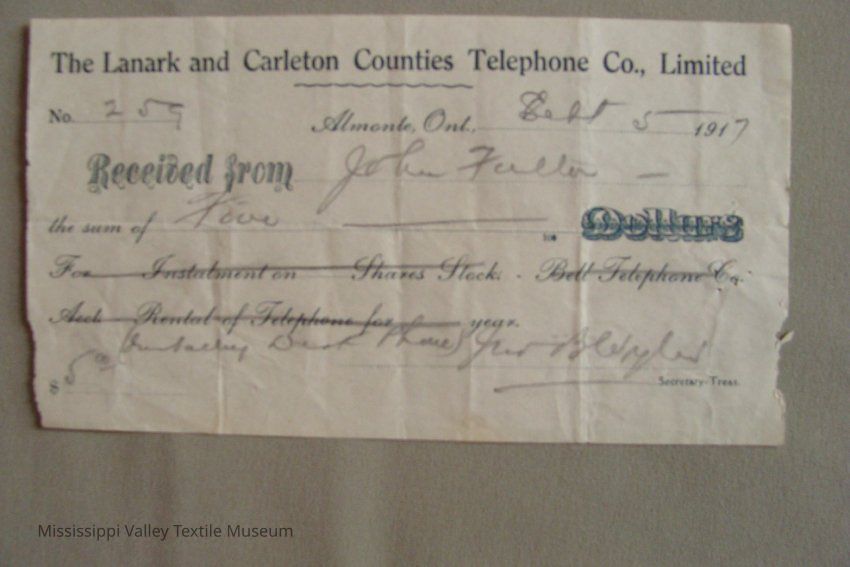 The Lanark and Carleton Counties Telephone Co., Limited
No. 259 Almonte, Ont., Sept 5 1917
Received from John Fuller
the sum of Five Dollars
For Instalment on Shares Stock. - Bell Telephone Co.
Acct. Rental of Telephone for year.
Phone Jno
$ 5.00 Secretary-Treas.
Mississippi Valley Textile Museum